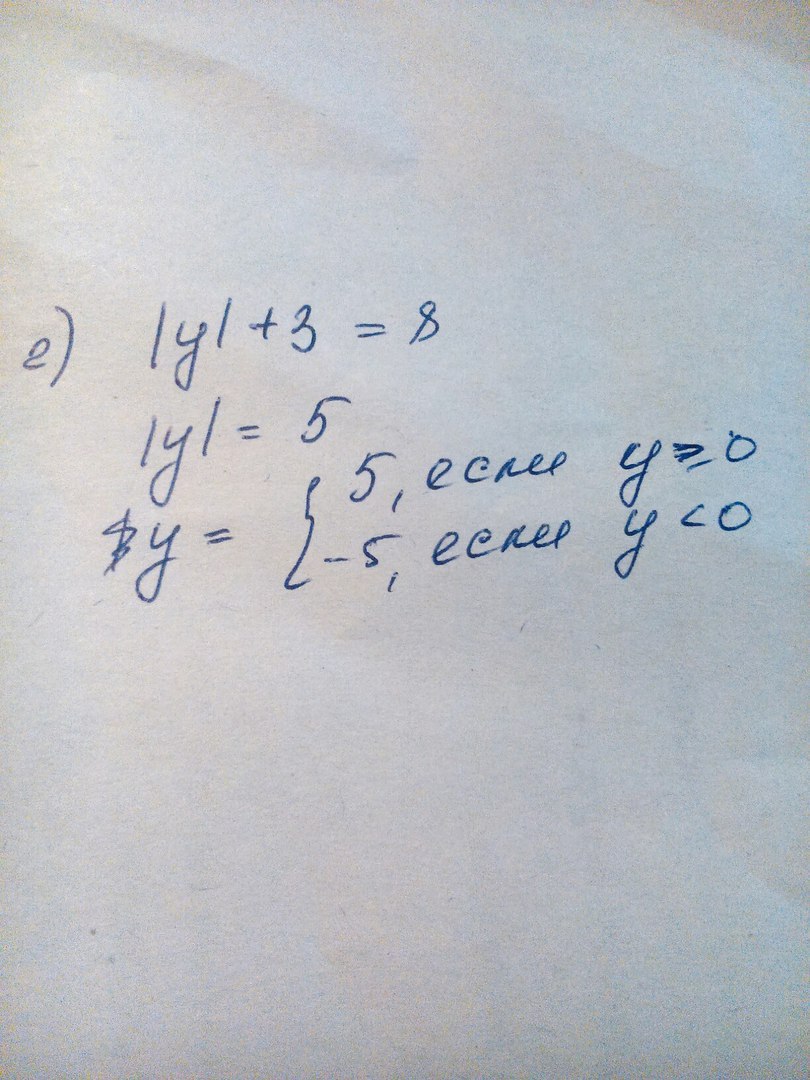 е) |y| + 3 = 8
|y| = 5
y = { 5, если y ⩾ 0
-5, если y < 0